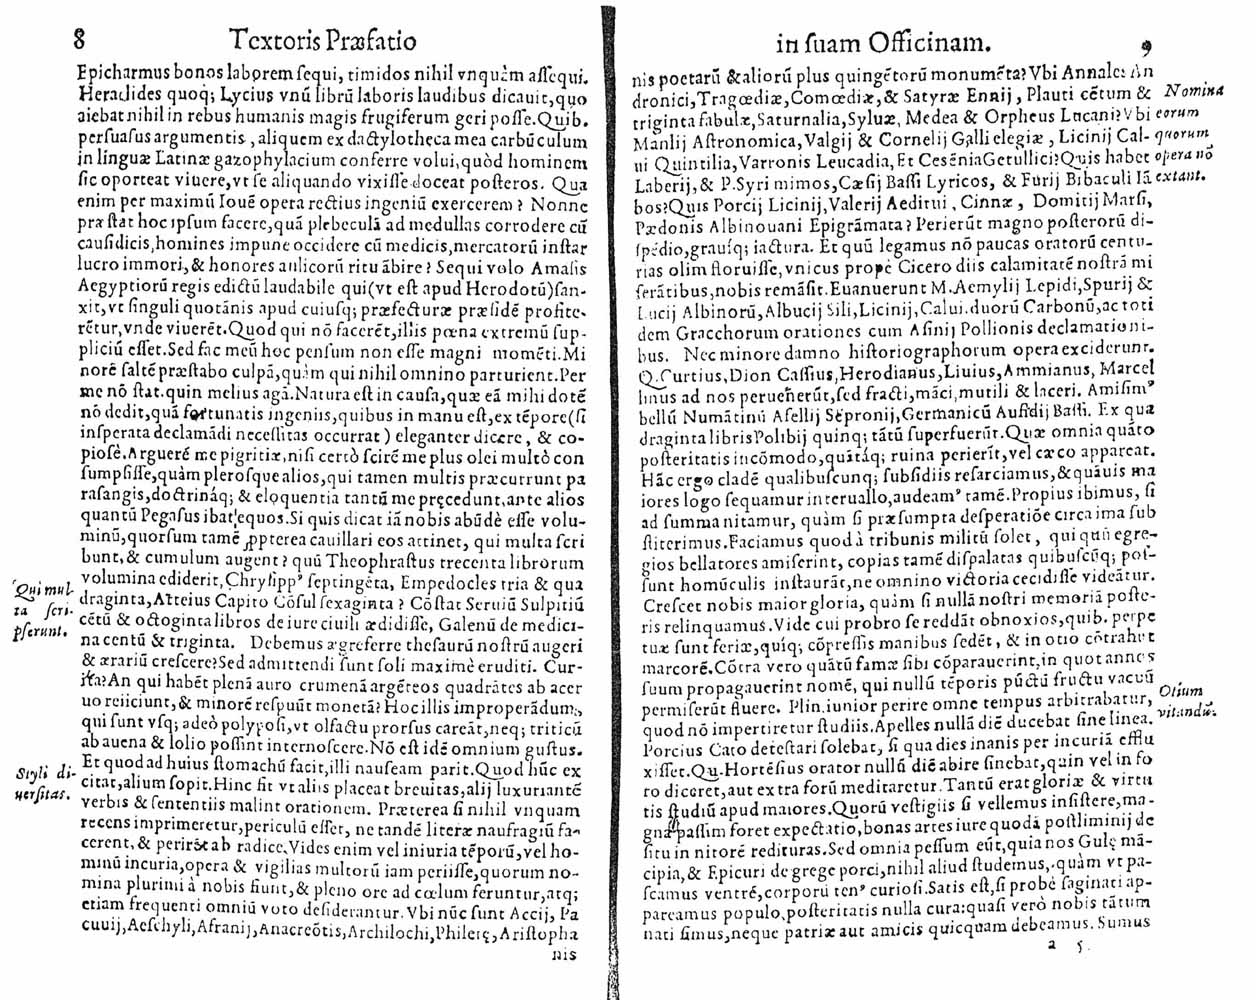 8 Textoris Præfatio
Epicharmus bonos laborem ſequi, timidos nihil vnquàm aſſequi.
Heraclides quoq; Lycius vnũ librũ laboris laudibus dicauit, quo
aiebat nihil in rebus humanis magis frugiferum geri poſſe. Quib.
perſuaſus argumentis, aliquem ex dactylotheca mea carbũculum
in linguæ Latinæ gazophylacium conferre volui, quòd hominem
ſic oporteat viuere, vt ſe aliquando vixiſſe doceat poſteros. Qua
enim per maximũ Iouẽ opera rectius ingeniũ exercerem? Nonne
præſtat hoc ipſum facere, quã plebeculã ad medullas corrodere cũ
cauſidicis, homines impune occidere cũ medicis, mercatorũ inſtar
lucro immori, & honores aulicorũ ritu ãbire? Sequi volo Amaſis
Aegyptiorũ regis edictũ laudabile qui (vt eſt apud Herodotũ) ſan-
xit, vt ſinguli quotãnis apud cuiuſq; præfecturæ præſidẽ profite-
rẽtur, vnde viuerẽt. Quod qui nõ facerẽt, illis pœna extremũ ſup-
pliciũ eſſet. Sed fac meũ hoc penſum non eſſe magni momẽti. Mi
norẽ ſaltẽ præſtabo culpã, quàm qui nihil omnino parturient. Per
me nõ ſtat. quin melius agã. Natura eſt in cauſa, quæ eã mihi dotẽ
nõ dedit, quã fortunatis ingeniis, quibus in manu eſt, ex tẽpore (ſi
inſperata declamãdi neceſſitas occurrat) eleganter dicere, & co-
pioſè. Arguerẽ me pigritiæ, niſi certò ſcirẽ me plus olei multò con
ſumpſiſſe, quàm pleroſque alios, qui tamen multis præcurrunt pa
raſangis, doctrináq; & eloquentia tantũ me pręcedunt, ante alios
quantũ Pegaſus ibat equos. Si quis dicat iã nobis abũdè eſſe volu-
minũ, quorſum tamẽ ꝓpterea cauillari eos attinet, qui multa ſcri
bunt, & cumulum augent? quũ Theophraſtus trecenta librorum
volumina ediderit, Chryſippꝰ ſeptingẽta, Empedocles tria & qua
Qui mul
ta ſcri-
pſerunt.
draginta, Atteius Capito Cõſul ſexaginta? Cõſtat Seruiũ Sulpitiũ
cẽtũ & octoginta libros de iure ciuili ædidiſſe, Galenũ de medici-
na centũ & triginta. Debemus ægreferre theſaurũ noſtrũ augeri
& ærariũ creſcere? Sed admittendi ſunt ſoli maximè eruditi. Cur-
ita? An qui habẽt plenã auro crumenã argẽteos quadrãtes ab acer
uo reiiciunt, & minorẽ reſpuũt monetã? Hoc illis improperãdum,
qui ſunt vſq; adeò polypoſi, vt olfactu prorſus careãt, neq; triticũ
ab auena & lolio poſſint internoſcere. Nõ eſt idẽ omnium guſtus.
Et quod ad huius ſtomachũ facit, illi nauſeam parit. Quod hũc ex
Styli di-
uerſitas.
citat, alium ſopit. Hinc fit vt aliis placeat breuitas, alij luxuriantẽ
verbis & ſententiis malint orationem. Præterea ſi nihil vnquam
recens imprimeretur, periculũ eſſet, ne tandẽ literæ naufragiũ fa-
cerent, & perirẽt ab radice. Vides enim vel iniuria tẽporũ, vel ho-
minũ incuria, opera & vigilias multorũ iam periiſſe, quorum no-
mina plurimi à nobis fiunt, & pleno ore ad cœlum feruntur, atq;
etiam frequenti omniũ voto deſiderantur. Vbi nũc ſunt Accij, Pa
cuuij, Aeſchyli, Afranij, Anacreõtis, Archilochi, Philetę, Ariſtopha
nis
in ſuam Officinam. 9
nis poetarũ & aliorũ plus quingẽtorũ monumẽta? Vbi Annales An
dronici, Tragœdiæ, Comœdiæ, & Satyræ Ennij, Plauti cẽtum &
Nomina
eorum
quorum
opera nõ
extant.
triginta fabulæ, Saturnalia, Syluæ, Medea & Orpheus Lucani? Vbi
Manlij Aſtronomica, Valgij & Cornelij Galli elegiæ, Licinij Cal-
ui Quintilia, Varronis Leucadia, Et Ceſẽnia Getullici? Quis habet
Laberij, & P. Syri mimos, Cæſij Baſſi Lyricos, & Furij Bibaculi Iã
bos? Quis Porcij Licinij, Valerij Aeditui, Cinnæ, Domitij Marſi,
Pædonis Albinouani Epigrãmata? Perierũt magno poſterorũ di-
ſpẽdio, grauíq; iactura. Et quũ legamus nõ paucas oratorũ centu-
rias olim floruiſſe, vnicus propè Cicero diis calamitatẽ noſtrã mi
ſerãtibus, nobis remãſit. Euanuerunt M. Aemylij Lepidi, Spurij &
Lucij Albinorũ, Albucij Sili, Licinij, Calui. duorũ Carbonũ, ac toti
dem Gracchorum orationes cum Aſinij Pollionis declamationi-
bus. Nec minore damno hiſtoriographorum opera exciderunt.
Q. Curtius, Dion Caſſius, Herodianus, Liuius, Ammianus, Marcel
linus ad nos peruenerũt, ſed fracti, mãci, mutili & laceri. Amiſimꝰ
bellũ Numãtinũ Aſellij Sẽpronij, Germanicũ Aufidij Baſſi. Ex qua
draginta libris Polibij quinq; tãtũ ſuperfuerũt. Quæ omnia quãto
poſteritatis incõmodo, quãtáq; ruina perierĩt, vel cæco appareat.
Hãc ergo cladẽ qualibuſcunq; ſubſidiis reſarciamus, & quãuis ma
iores logo ſequamur interuallo, audeamꝰ tamẽ. Propius ibimus, ſi
ad ſumma nitamur, quàm ſi præſumpta deſperatiõe circa ima ſub
ſtiterimus. Faciamus quod à tribunis militũ ſolet, qui quũ egre-
gios bellatores amiſerint, copias tamẽ diſpalatas quibuſcũq; poſ-
ſunt homũculis inſtaurãt, ne omnino victoria cecidiſſe videãtur.
Creſcet nobis maior gloria, quàm ſi nullã noſtri memoriã poſte-
ris relinquamus. Vide cui probro ſe reddãt obnoxios, quib. perpe
tuæ ſunt feriæ, quíq; cõpreſſis manibus ſedẽt, & in otio cõtrahũt
marcorẽ. Cõtra vero quãtũ famæ ſibi cõparauerint, in quot annos
ſuum propagauerint nomẽ, qui nullũ tẽporis pũctũ fructu vacuũ
permiſerũt fluere. Plin. iunior perire omne tempus arbitrabatur,
Otium
vitandũ.
quod nõ impertiretur ſtudiis. Apelles nullã diẽ ducebat ſine linea.
Porcius Cato deteſtari ſolebat, ſi qua dies inanis per incuriã efflu
xiſſet. Qu. Hortẽſius orator nullũ diẽ abire ſinebat, quin vel in fo
ro diceret, aut extra forũ meditaretur. Tantũ erat gloriæ & virtu
tis ſtudiũ apud maiores. Quorũ veſtigiis ſi vellemus inſiſtere, ma-
gna paſſim foret expectatio, bonas artes iure quodã poſtliminij de
ſitu in nitorẽ redituras. Sed omnia peſſum eũt, quia nos Gulę mã-
cipia, & Epicuri de grege porci, nihil aliud ſtudemus, quàm vt pa-
ſcamus ventrẽ, corporũ tenꝰ curioſi. Satis eſt, ſi probè ſaginati ap-
pareamus populo, poſteritatis nulla cura: quaſi verò nobis tãtum
nati ſimus, neque patriæ aut amicis quicquam debeamus. Sumus
a 5.